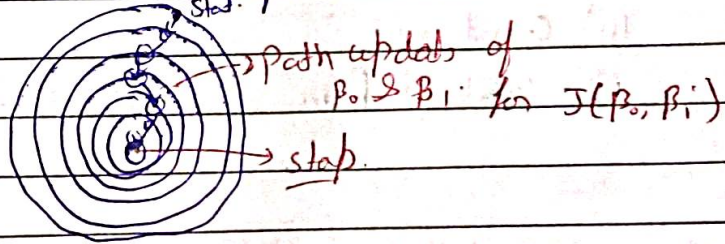 Start
→ path updats of
β₀ & β₁ for J(β₀, β₁)
→ stop.